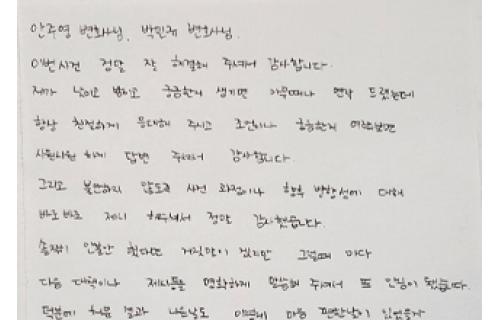 안주영 변호사님, 박민규 변호사님.
이번사건 정말 잘 해결해 주셔서 감사합니다.
제가 낮이고 밤이고 궁금한게 생기면 아무때나 연락 드렸는데
항상 친절하게 응대해 주시고 조언이나 궁금한게 여쭤보면
시원시원 하게 답변 주셔서 감사합니다.
그리고 불안하지 않도록 사건 과정이나 향후 방향성에 대해
바로바로 제시 해주셔서 정말 감사했습니다.
솔직히 안불안 했다면 거짓말이 겠지만 그럴때 마다
다음 대책이나 제시들을 명확하게 말씀해 주셔서 또 안심이 됐습니다.
덕분에 처음 결과 나온날도 마음 편한날이 있었을까